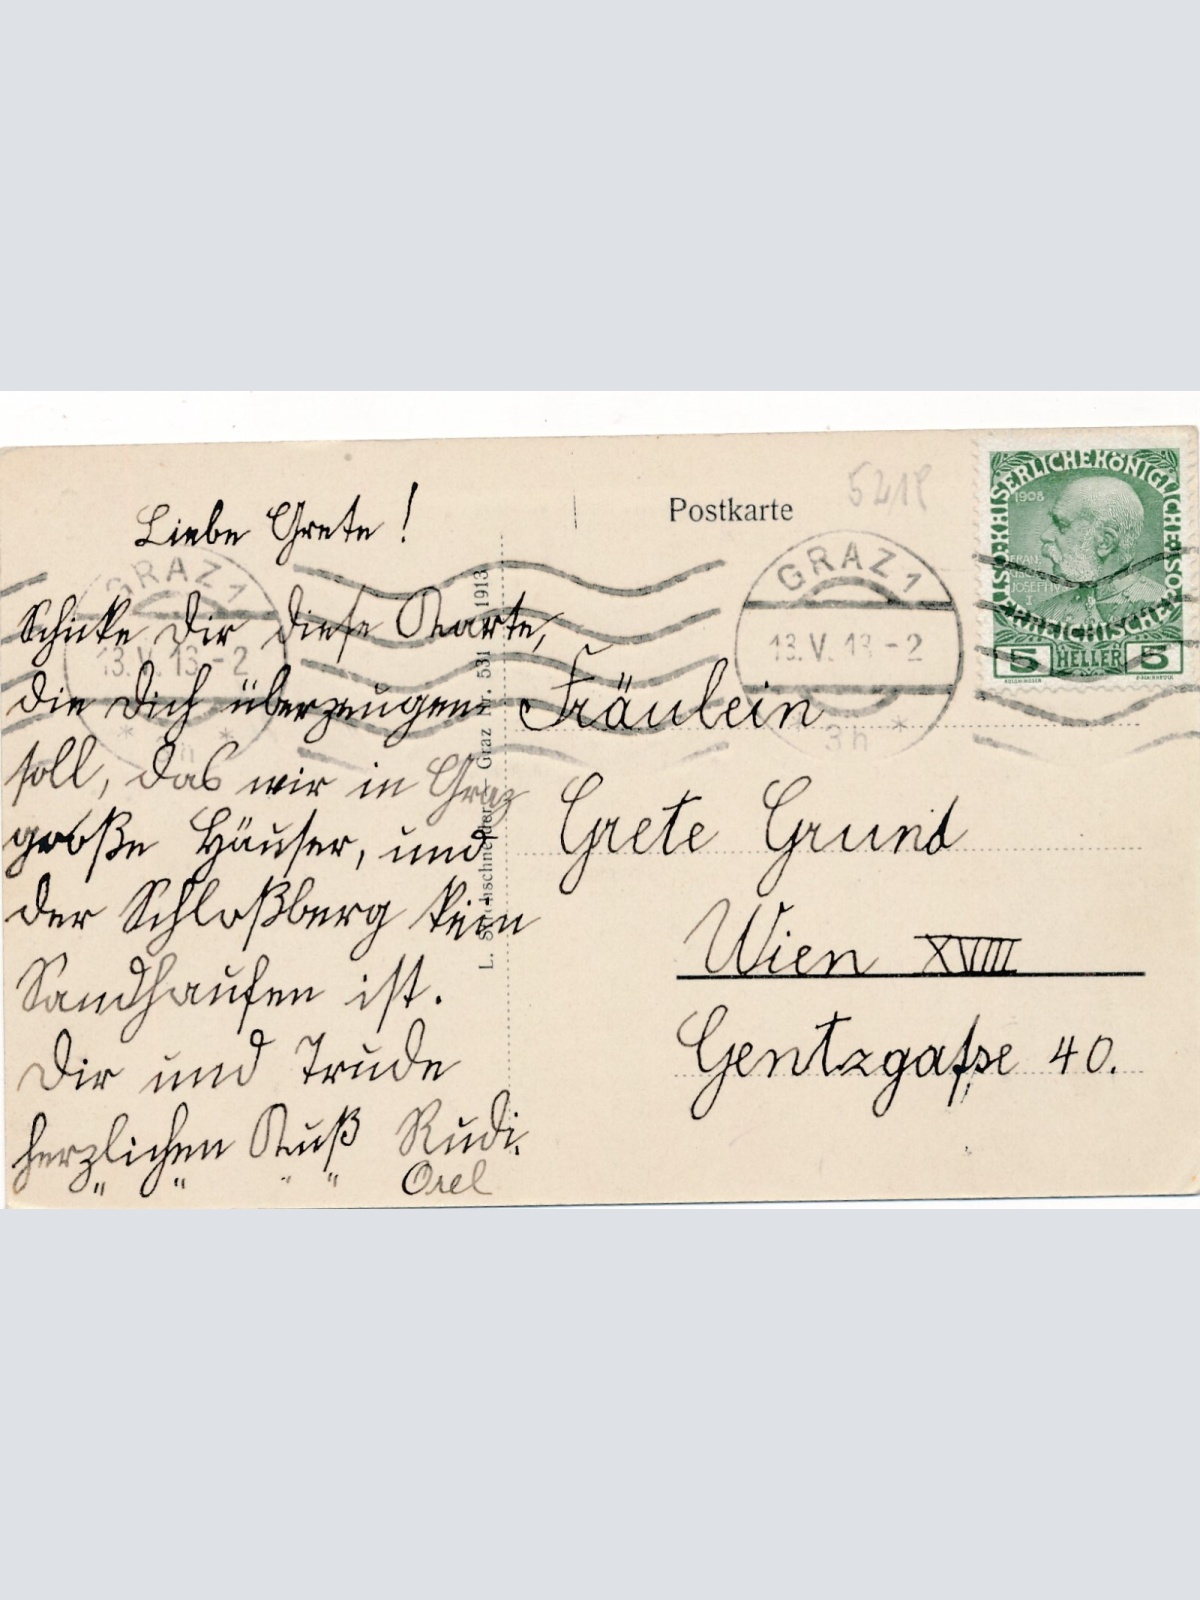 Liebe Grete!
Schicke Dir diese Karte,
die Dich überzeugen
soll, das wir in Graz
große Häuser, und
der Schloßberg kein
Sandhaufen ist.
Dir und Trude
herzlichen Kuß Rudi.
" " " " Orel
L. Graz Nr. 531 1913
Postkarte
5218
GRAZ 1
13.V.13-2
* 3h *
GRAZ 1
13.V.13-2
* *
KAISERLICHE KÖNIGLICHE ÖSTERREICHISCHE POST
1908
FRANCISCVS
JOSEPHVS
I.
5 HELLER 5
Fräulein
Grete Grund
Wien XVIII
Gentzgasse 40.